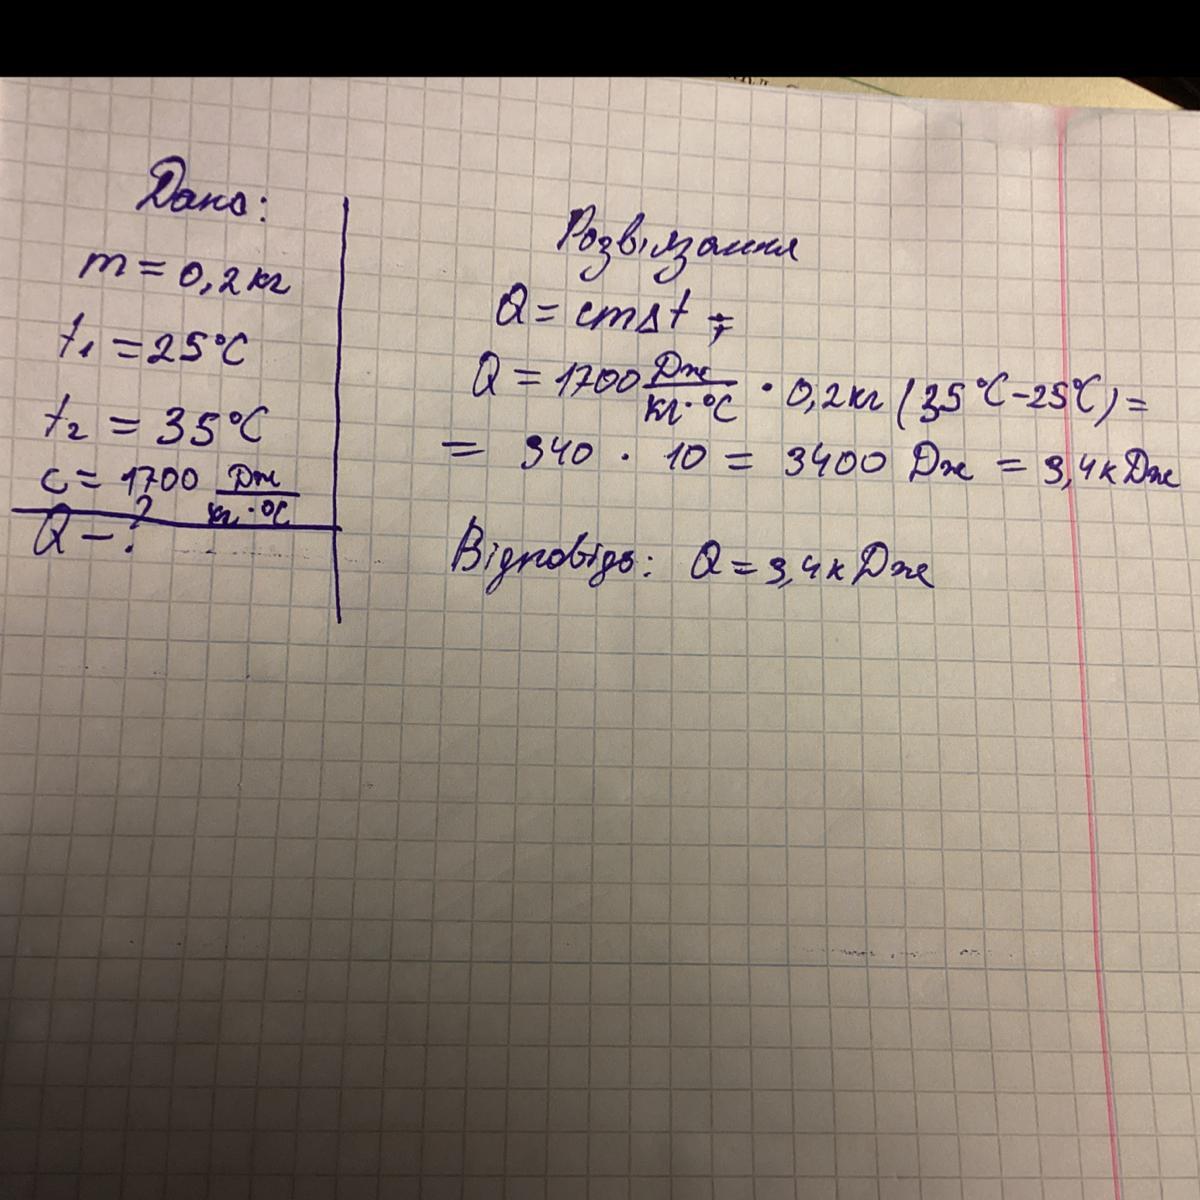 Дано:
m = 0,2 кг
t₁ = 25°C
t₂ = 35°C
c = 1700 Дж/кг·°C
Q – ?
Розвʼязання
Q = cmΔt ;
Q = 1700 Дж/кг·°C · 0,2 кг (35°C – 25°C) =
= 340 · 10 = 3400 Дж = 3,4 кДж
Відповідь: Q = 3,4 кДж